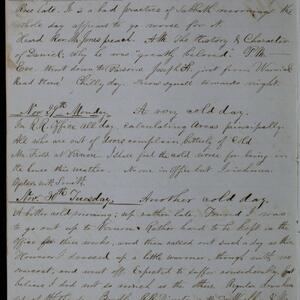 Rose late. It is a bad practice of Sabbath mornings the
whole day appears to go worse for it.
Heard Rev. Mr. Jones preach. A.M. The History & Character
of Daniel, who is was "greatly beloved." P.M.
Eve. Went down to Parsons Joseph H. just from
Read there. Chilly day. Snow squall towards night.
Nov. 29th Monday. A very cold day.
In R.R. Office all day. Calculating Areas principally.
All who are out of Town complain bitterly of Cold
Mr. Field at Vernon. I then feel the cold worse for being in
the house this weather. No one in Office but
with Smith.
Nov. 30th Tuesday. Another cold day.
A bitter cold morning; up rather late. Found I was
to go out up to Vernon. Rather hard to be kept in the
Office for three weeks, and then called out such a day as this
However I dressed up a little warmer, though with no
waistcoat, and went off. Expected to suffer considerably, but
believe I did not so much as the others.